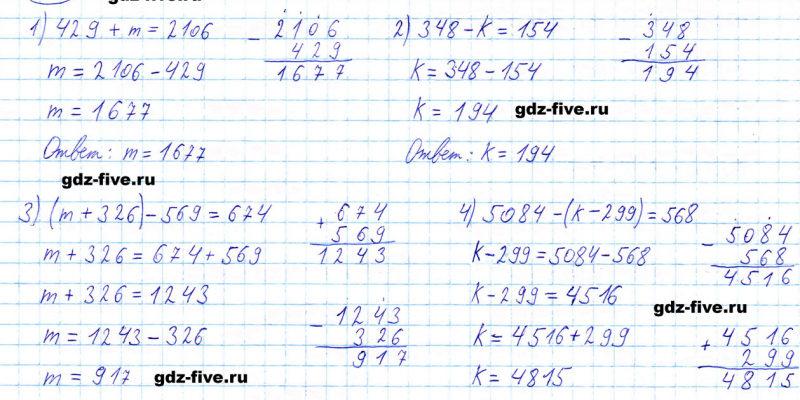 gdz-five.ru
1) 429 + m = 2106
m = 2106 - 429
m = 1677
Ответ: m = 1677
- 2106
429
1677
2) 348 - k = 154
k = 348 - 154
k = 194
Ответ: k = 194
- 348
154
194
gdz-five.ru
gdz-five.ru
3) (m + 326) - 569 = 674
m + 326 = 674 + 569
m + 326 = 1243
m = 1243 - 326
m = 917
gdz-five.ru
+ 674
569
1243
- 1243
326
917
4) 5084 - (k - 299) = 568
k - 299 = 5084 - 568
k - 299 = 4516
k = 4516 + 299
k = 4815
- 5084
568
4516
gdz-five.ru
+ 4516
299
4815